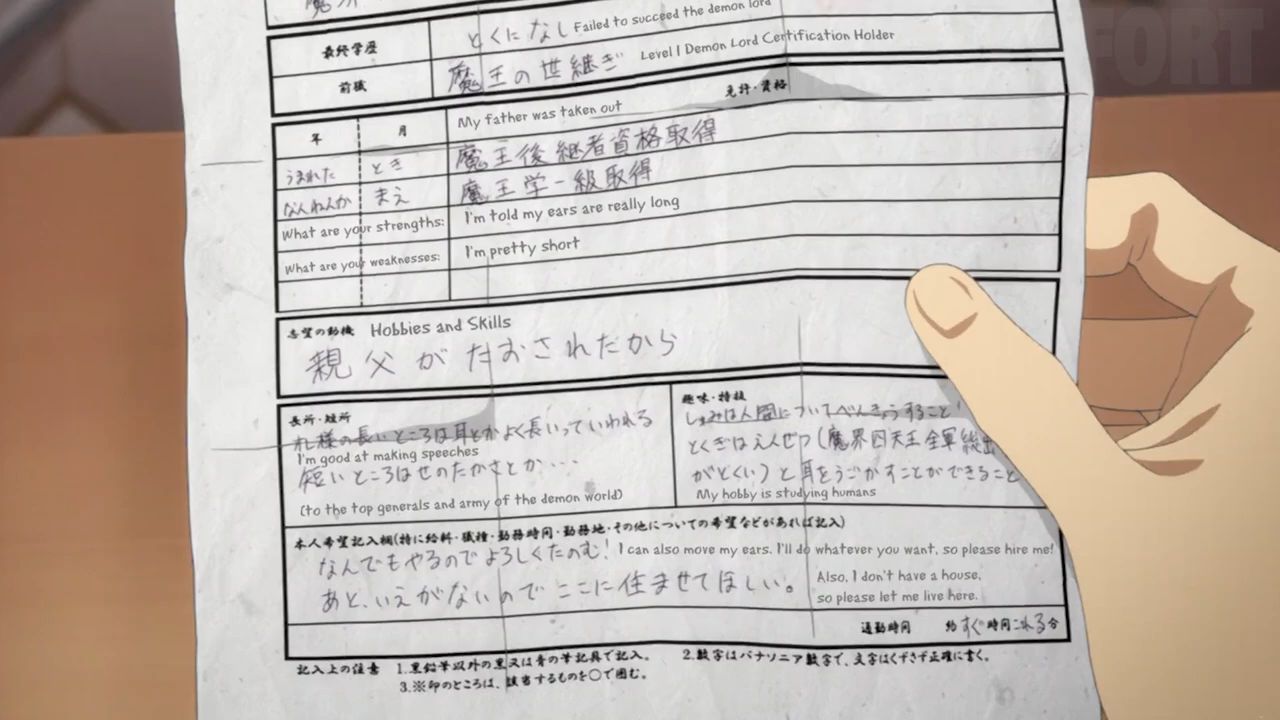 最終学歴
とくになし Failed to succeed the demon lord
前職
魔王の世継ぎ Level 1 Demon Lord Certification Holder
年 月 免許・資格
My father was taken out
うまれた とき 魔王後継者資格取得
なんねんか まえ 魔王学一級取得
What are your strengths: I'm told my ears are really long
What are your weaknesses: I'm pretty short
志望の動機 Hobbies and Skills
親父がたおされたから
長所・短所
札様の長いところは耳とかよく長いっていわれる
I'm good at making speeches
短いところはせのたかさとか・・・
(to the top generals and army of the demon world)
趣味・特技
しゅみは人間についてべんきょうすること
とくぎはえんぜつ(魔界四天王全軍総出
がとくい)と耳をうごかすことができること
My hobby is studying humans
本人希望記入欄(特に給料・職種・勤務時間・勤務地・その他についての希望などがあれば記入)
なんでもやるのでよろしくたのむ! I can also move my ears. I'll do whatever you want, so please hire me!
あと、いえがないのでここに住ませてほしい。
Also, I don't have a house,
so please let me live here.
通勤時間 約すぐ時間これる分
記入上の注意 1.黒鉛筆以外の黒又は青の筆記具で記入。 2.数字はバナソニア数字で、文字はくずさず正確に書く。
3.※印のところは、該当するものを〇で囲む。
FORT